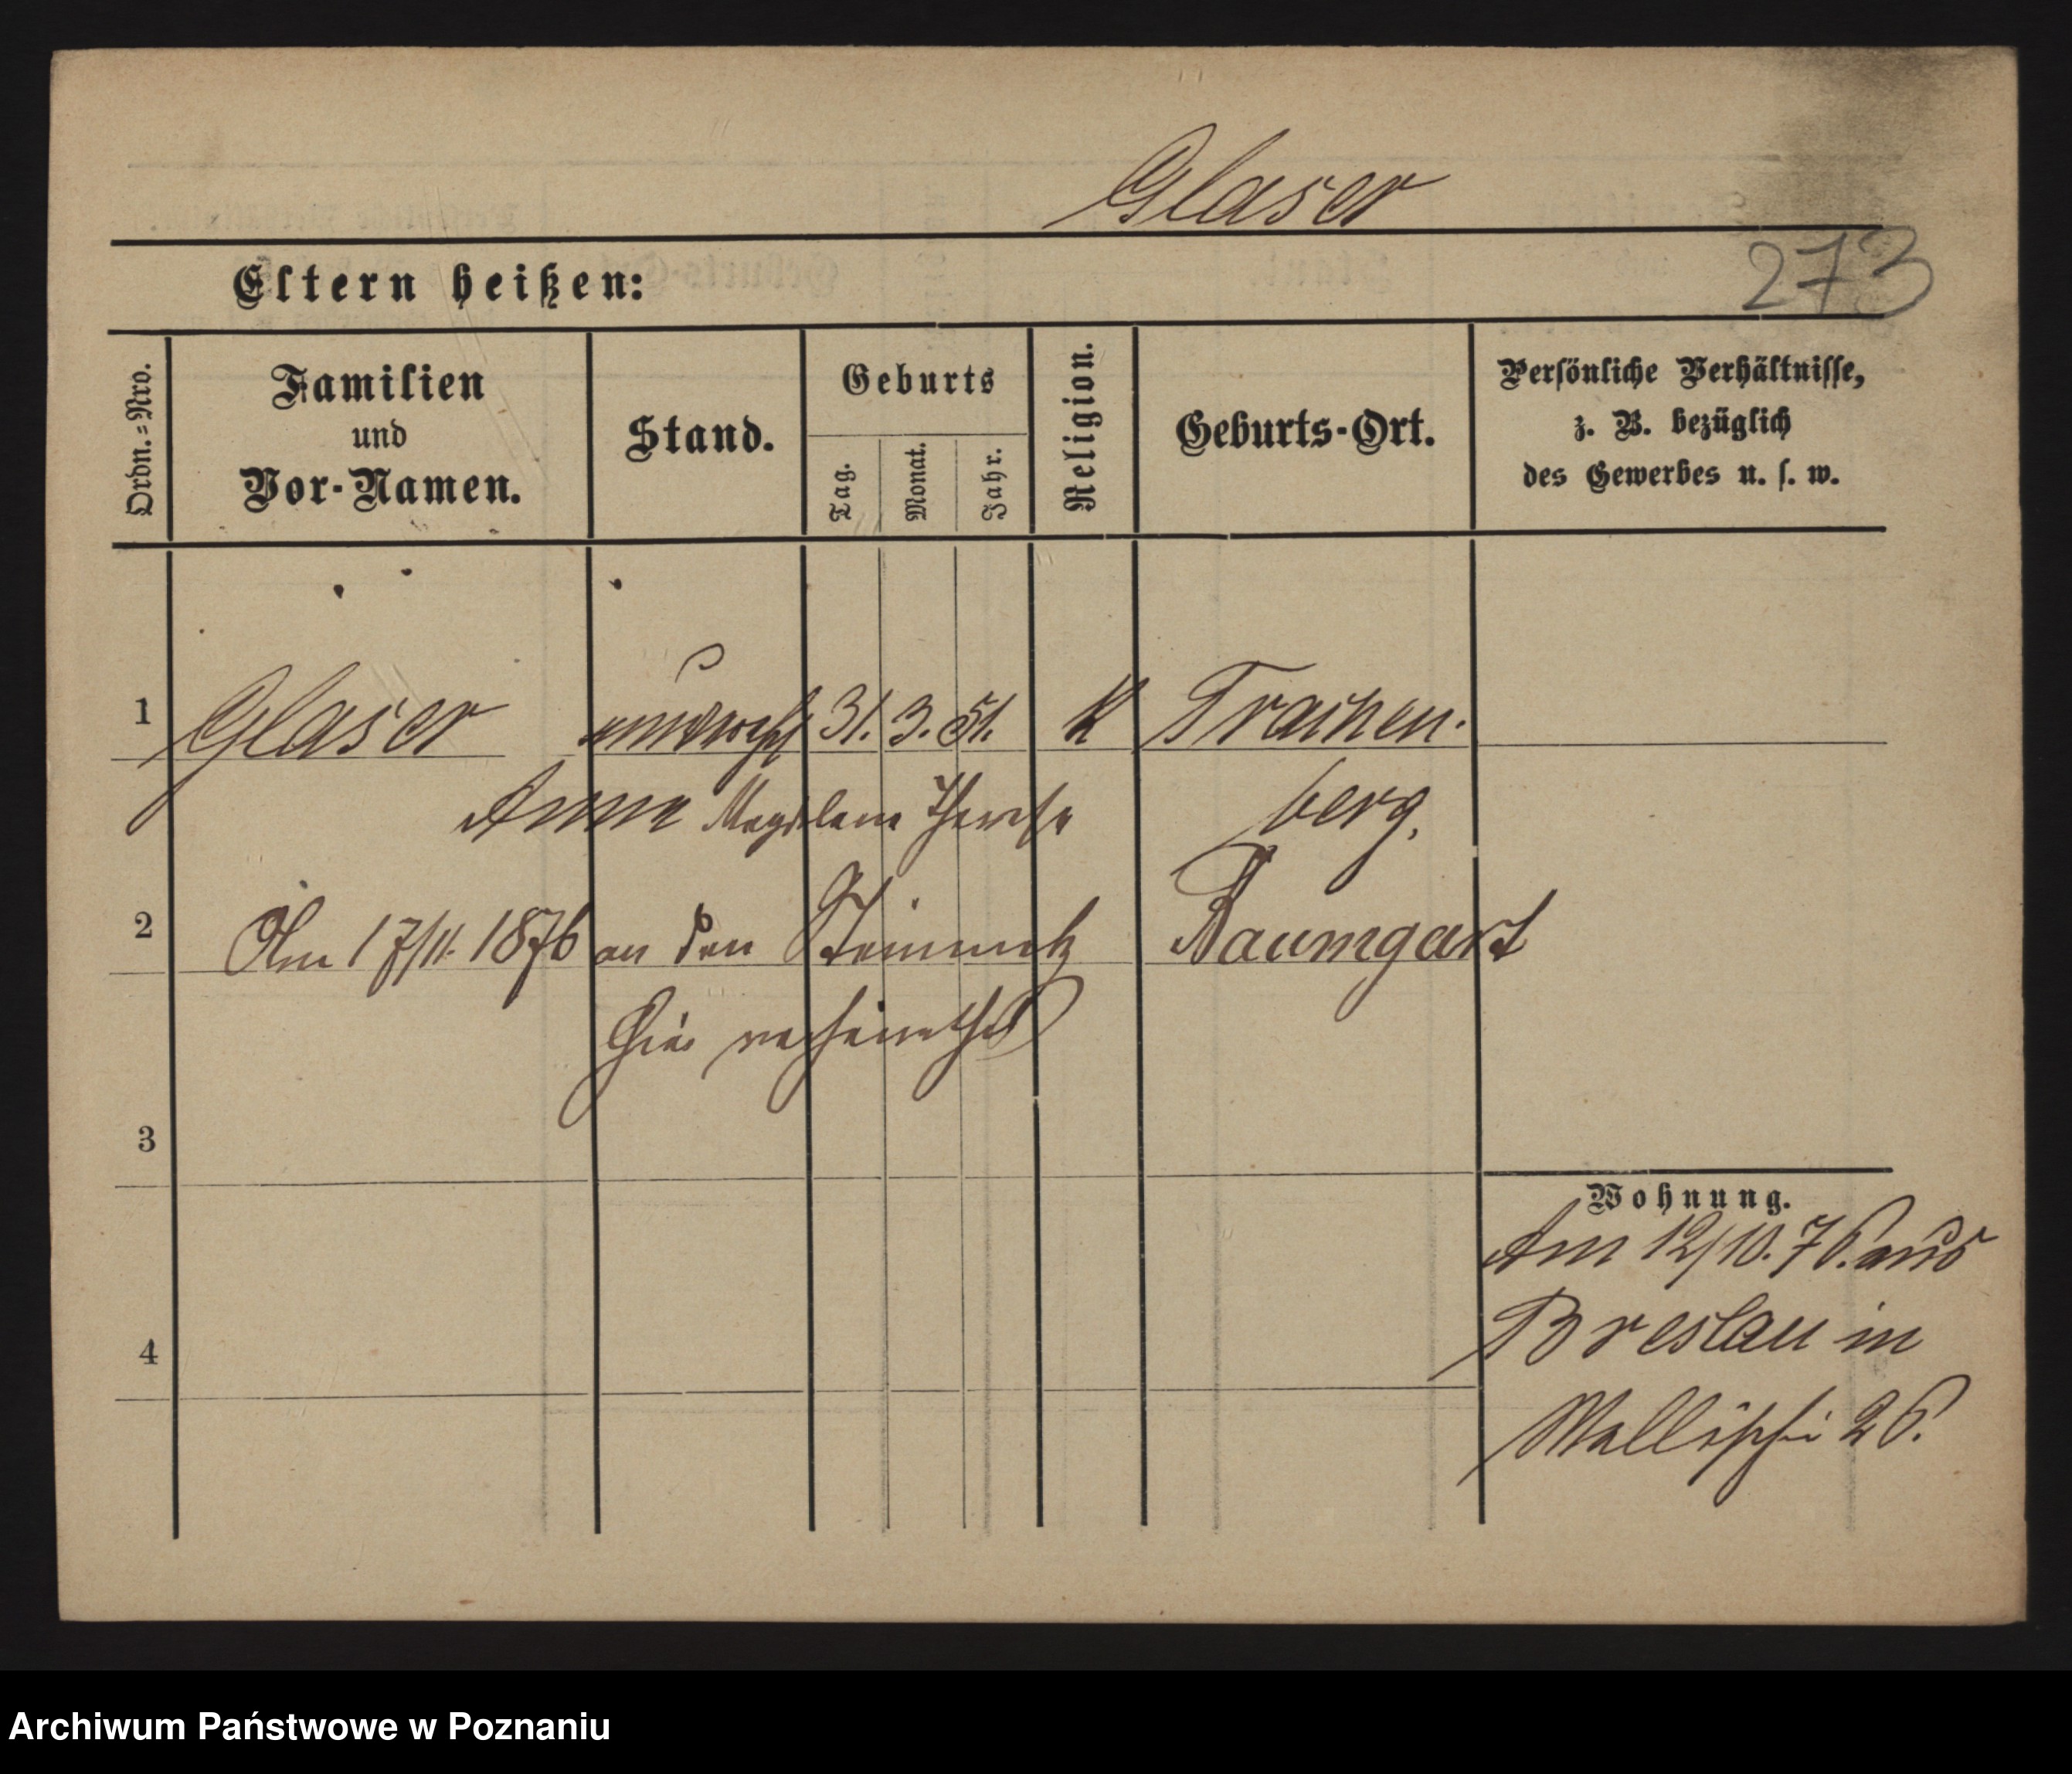 Glaser
273
Eltern heißen:
Ordn.=Nro.
Familien
und
Vor-Namen.
Stand.
Geburts
Tag.
Monat.
Jahr.
Religion.
Geburts-Ort.
Persönliche Verhältnisse,
z. B. bezüglich
des Gewerbes u. s. w.
1 Glaser unverehl 31. 3. 51. K Trachen-
Anna Magdalena Therese berg.
2 Am 17/11. 1876 an den Steinmetz Baumgart
hier verheirathet
3
Wohnung.
Am 12/10. 76. aus
Breslau in
4
Wallischei 26.
Archiwum Państwowe w Poznaniu